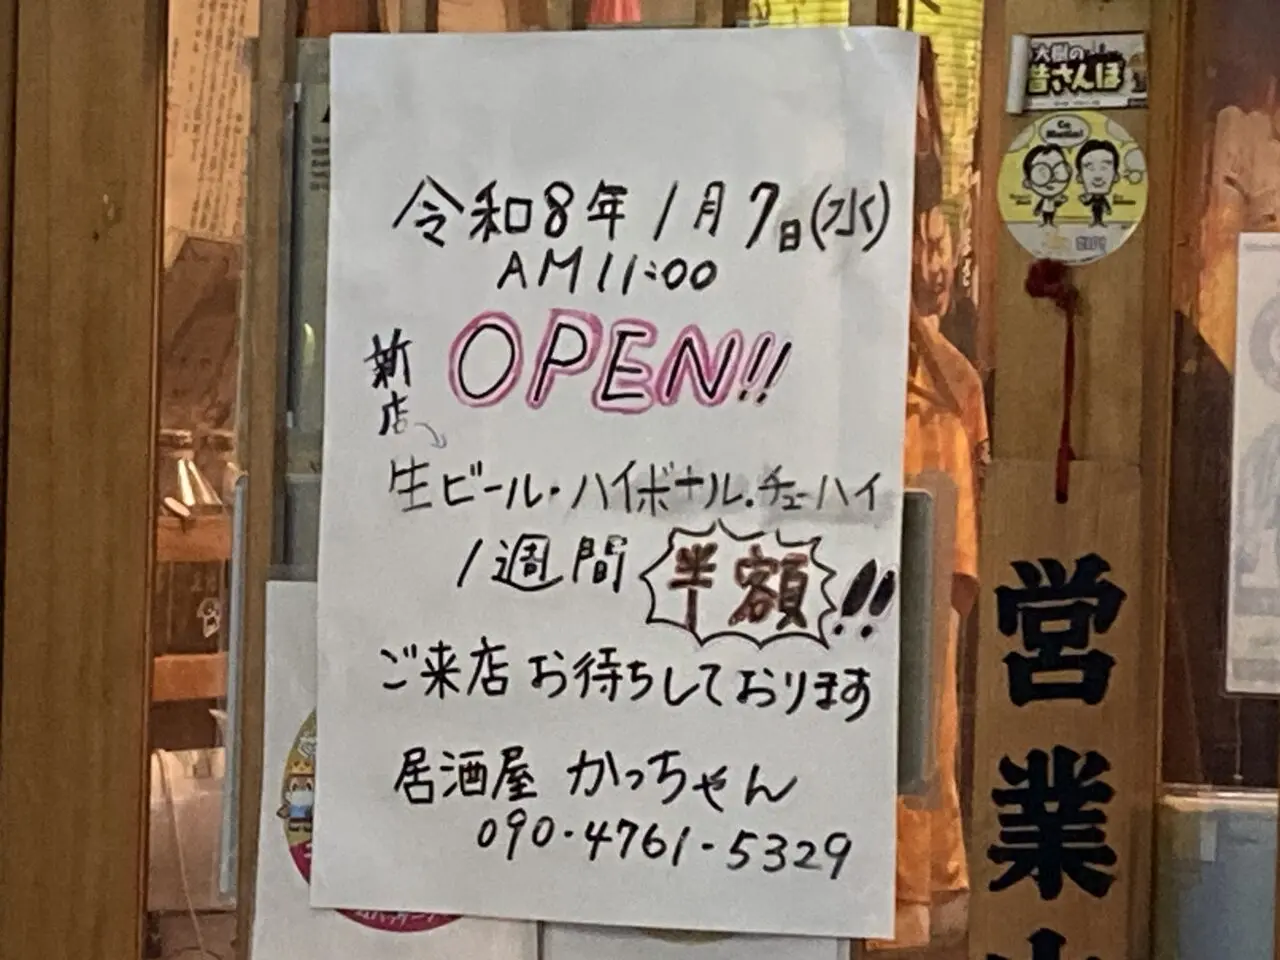 令和8年1月7日(水)
AM11:00
新店
OPEN!!
生ビール・ハイボール・チューハイ
1週間 半額!!
ご来店お待ちしております
居酒屋 かっちゃん
090-4761-5329
大樹の
昔さんぽ
営業